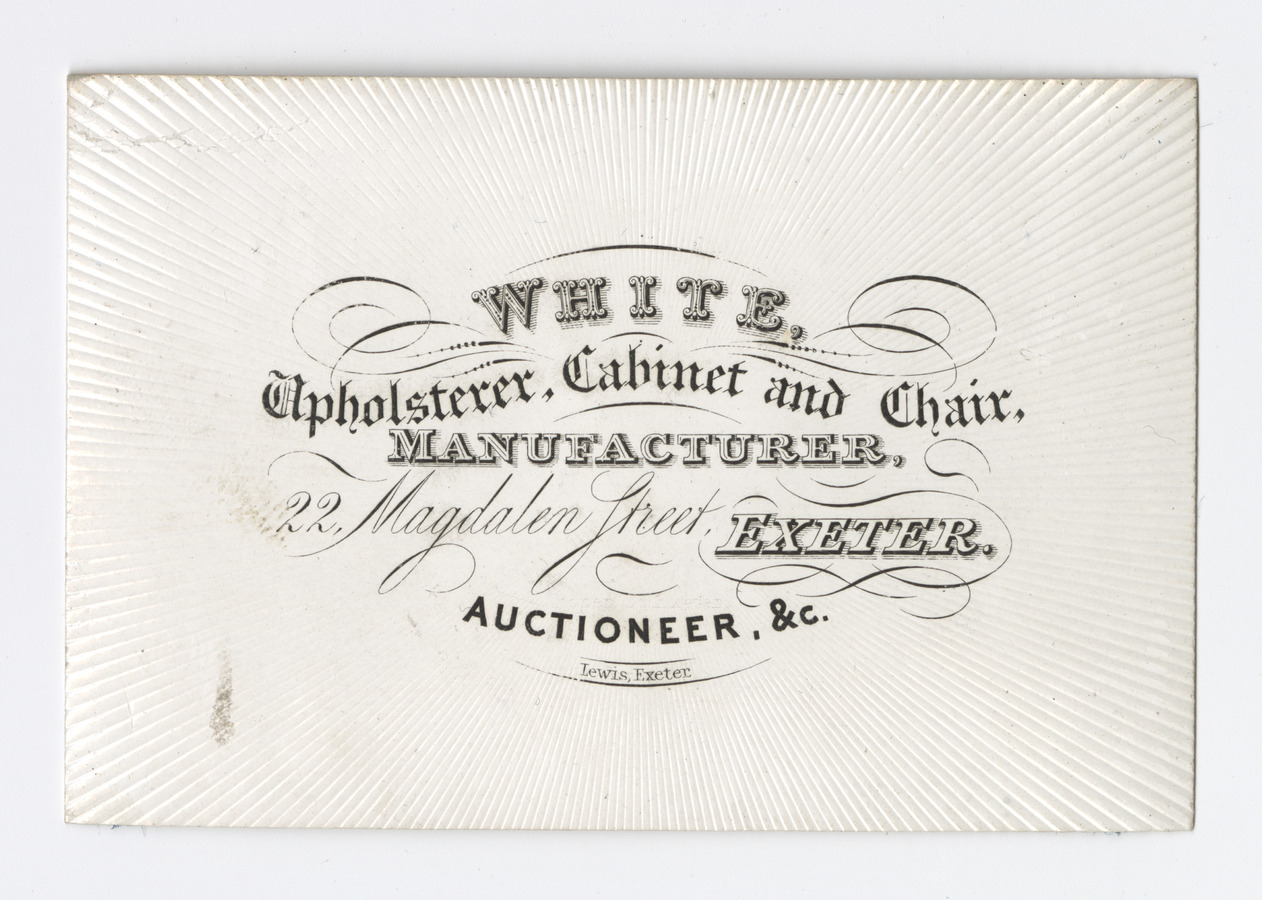 WHITE,
Upholsterer, Cabinet and Chair,
MANUFACTURER,
22, Magdalen Street, EXETER.
AUCTIONEER, &c.
Lewis, Exeter